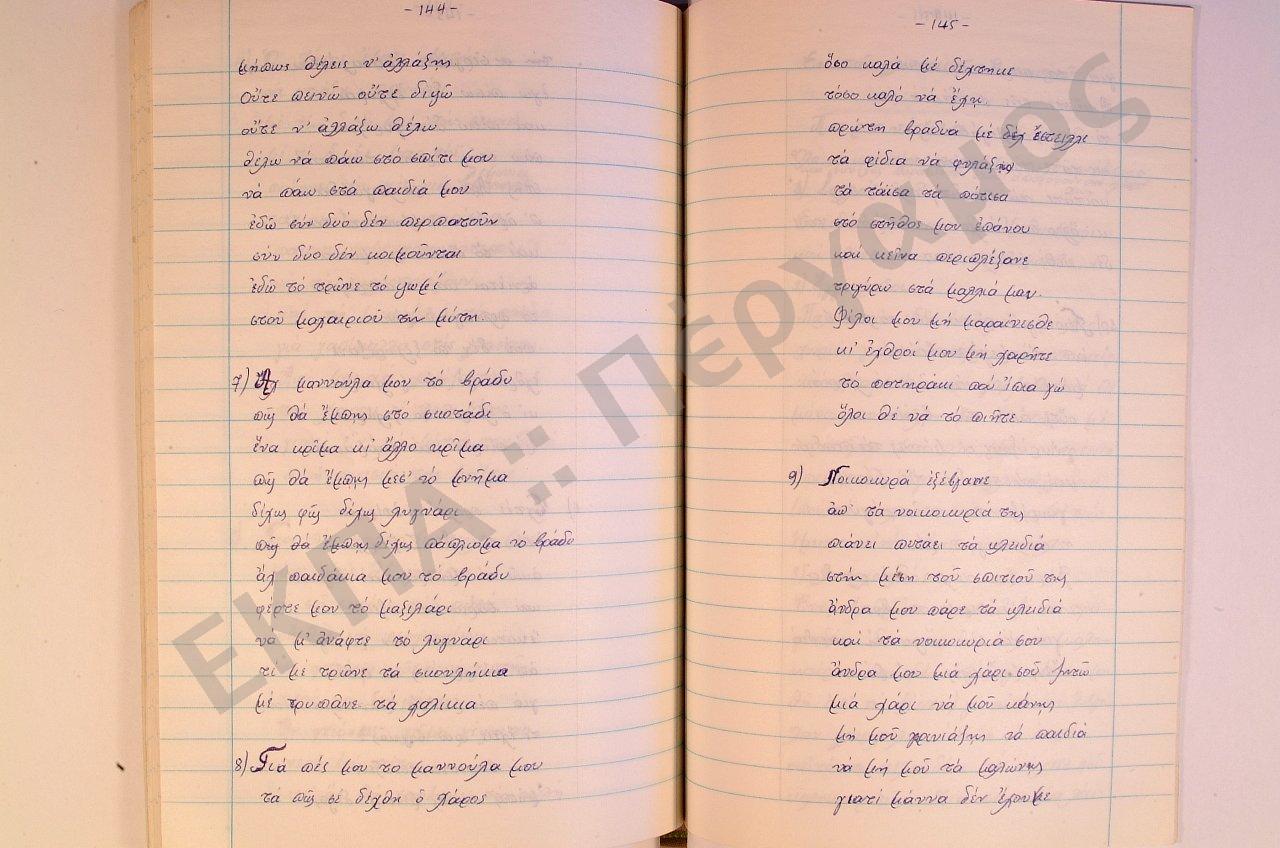 - 144 -
μήπως θέλεις ν' ἀλλάξης
Οὔτε πεινῶ οὔτε διψῶ
οὔτε ν' ἀλλάξω θέλω
θέλω νά πάω στό σπίτι μου
νά πάω στά παιδιά μου
ἐδῶ σύν δυό δέν περπατοῦν
σύν δύο δέν κοιμοῦνται
ἐδῶ τό τρῶνε τό ψωμί
στοῦ μαχαιριοῦ τήν μύτη.
7) Ἄχ μαννούλα μου τό βράδυ
πῶς θά ἔμπης στό σκοτάδι
ἕνα κρῖμα κι' ἄλλο κρῖμα
πῶς θά ἔμπης μεσ' τό μνῆμα
δίχως φῶς δίχως λυχνάρι
πῶς θά ἔμπης δίχως πάπλωμα τό βράδυ
ἄχ παιδάκια μου τό βράδυ
φέρτε μου τό μαξιλάρι
νά μ' ἀνάφτε τό λυχνάρι
τί μέ τρῶνε τά σκουλήκια
μέ τρυπᾶνε τά χαλίκια
8) Γιά πές μου το μαννούλα μου
τά πῶς σέ δέχθη ὁ χάρος
- 145 -
ὅσο καλά μέ δέχτηκε
τόσο καλό νά ἔχη.
πρώτη βραδυά μέ ἔστειλλε
τά φίδια νά φυλάξω
τά τάϊσα τά πότισα
στό στῆθος μου ἐπάνου
καί κεῖνα περιπλέξανε
τριγύρω στά μαλλιά μου.
Φίλοι μου μή μαραίνεσθε
κι' ἐχθροί μου μή χαρῆτε
τό ποτηράκι πού ἤπια γώ
ὅλοι θέ νά τό πιῆτε.
9) Νοικοκυρά ἐξέβγαινε
ἀπ' τά νοικοκυριά της
πιάνει πυτάει τά κλειδιά
στήν μέση τοῦ σπιτιοῦ της
ἄνδρα μου πάρε τά κλειδιά
καί τά νοικοκυριά σου
ἄνδρα μου μιά χάρι σοῦ ζητῶ
μιά χάρι νά μοῦ κάνης
μή μοῦ χουγιάξης τά παιδιά
νά μή μοῦ τά μαλώνης
γιατί μάννα δέν ἔχουμε
ΕΚΠΑ :: Πέργαμος